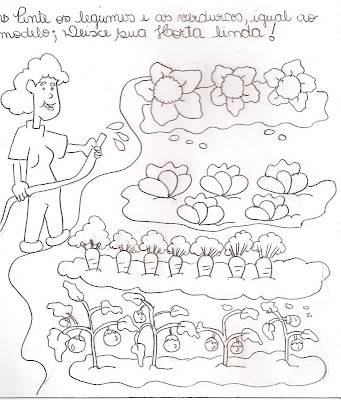 Pinte os legumes e as verduras, igual ao
modelo; Deixe sua Horta linda!